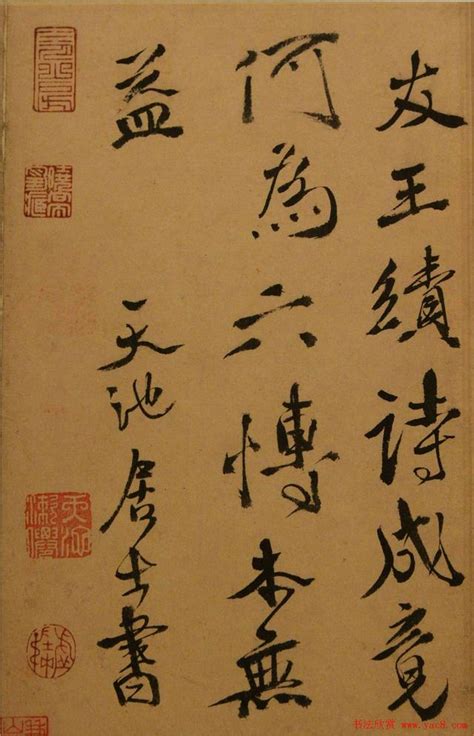 友王續詩成竟
何為六愽本無
益
天池居士書
书法欣赏 www.yac8.com